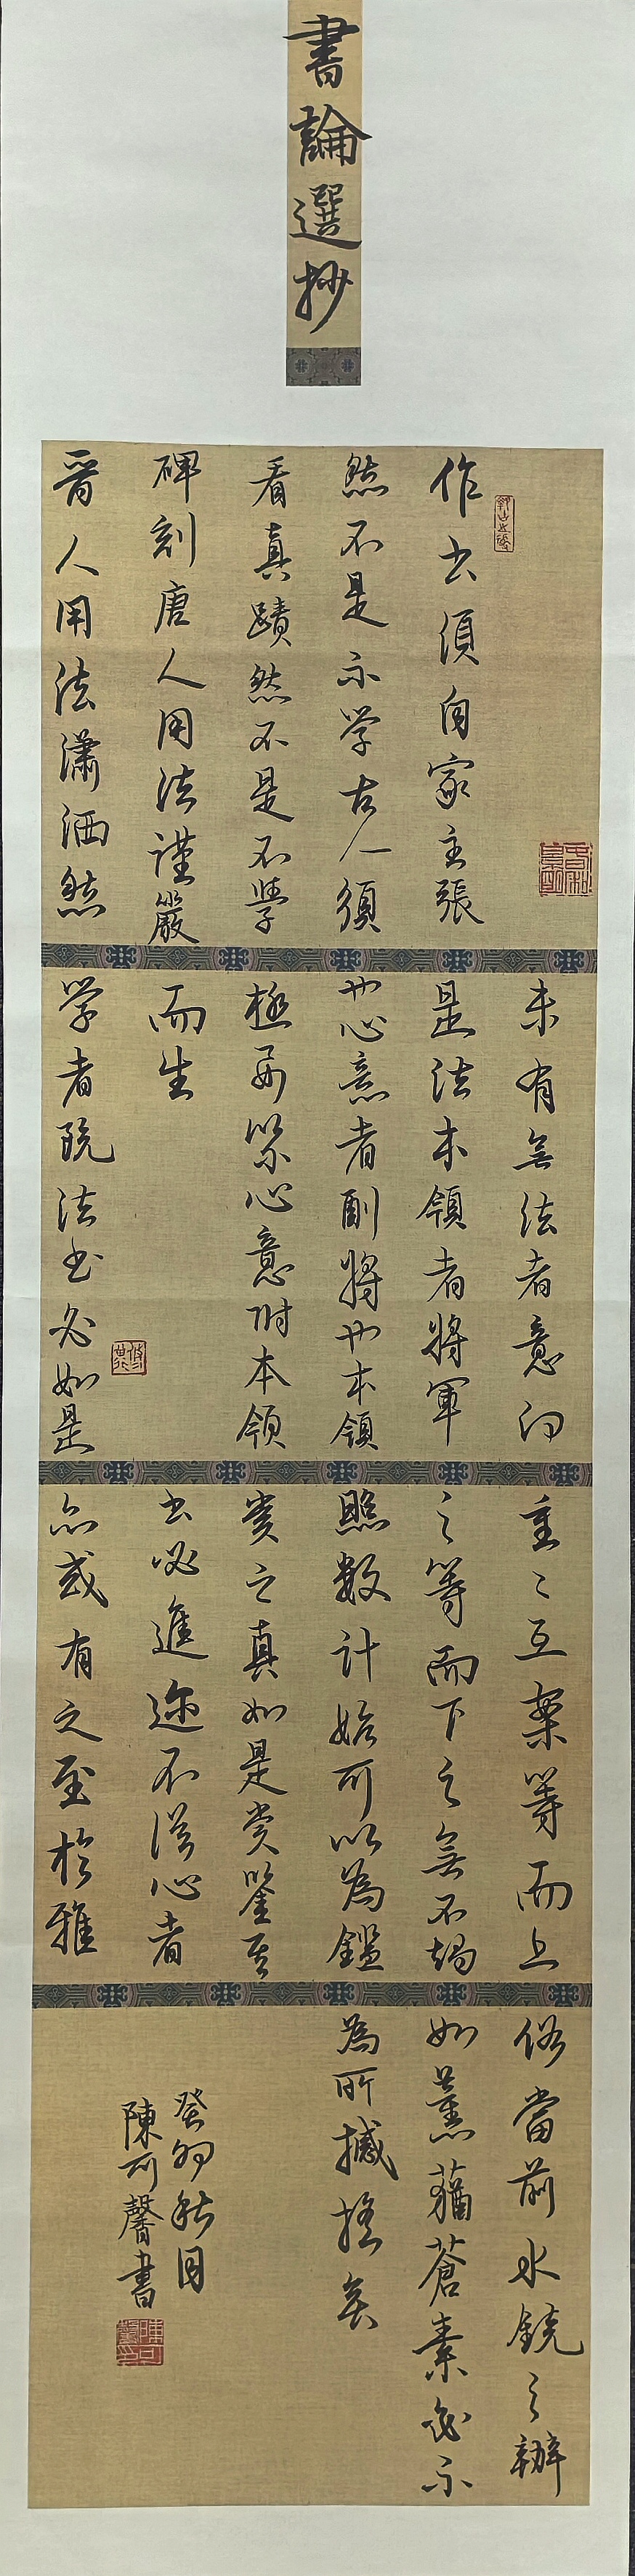 書論選抄
作書須自家主張
然不是不學古人須
看真蹟然不是不學
碑刻唐人用法謹嚴
晉人用法瀟洒然
未有無法者意即
是法本領者將軍
也心意者副將也本領
極要緊心意附本領
而生
學者既法書必如是
重重互案等而上
之等而下之無不竭
照數計始可以為鑑
賞之真如是賞鑒至
書必進迹不從心者
亦或有之至於雅
俗當前水鏡之辨
如薰蕕蒼素命不
為所撼搖矣
癸卯秋月
陳可馨書